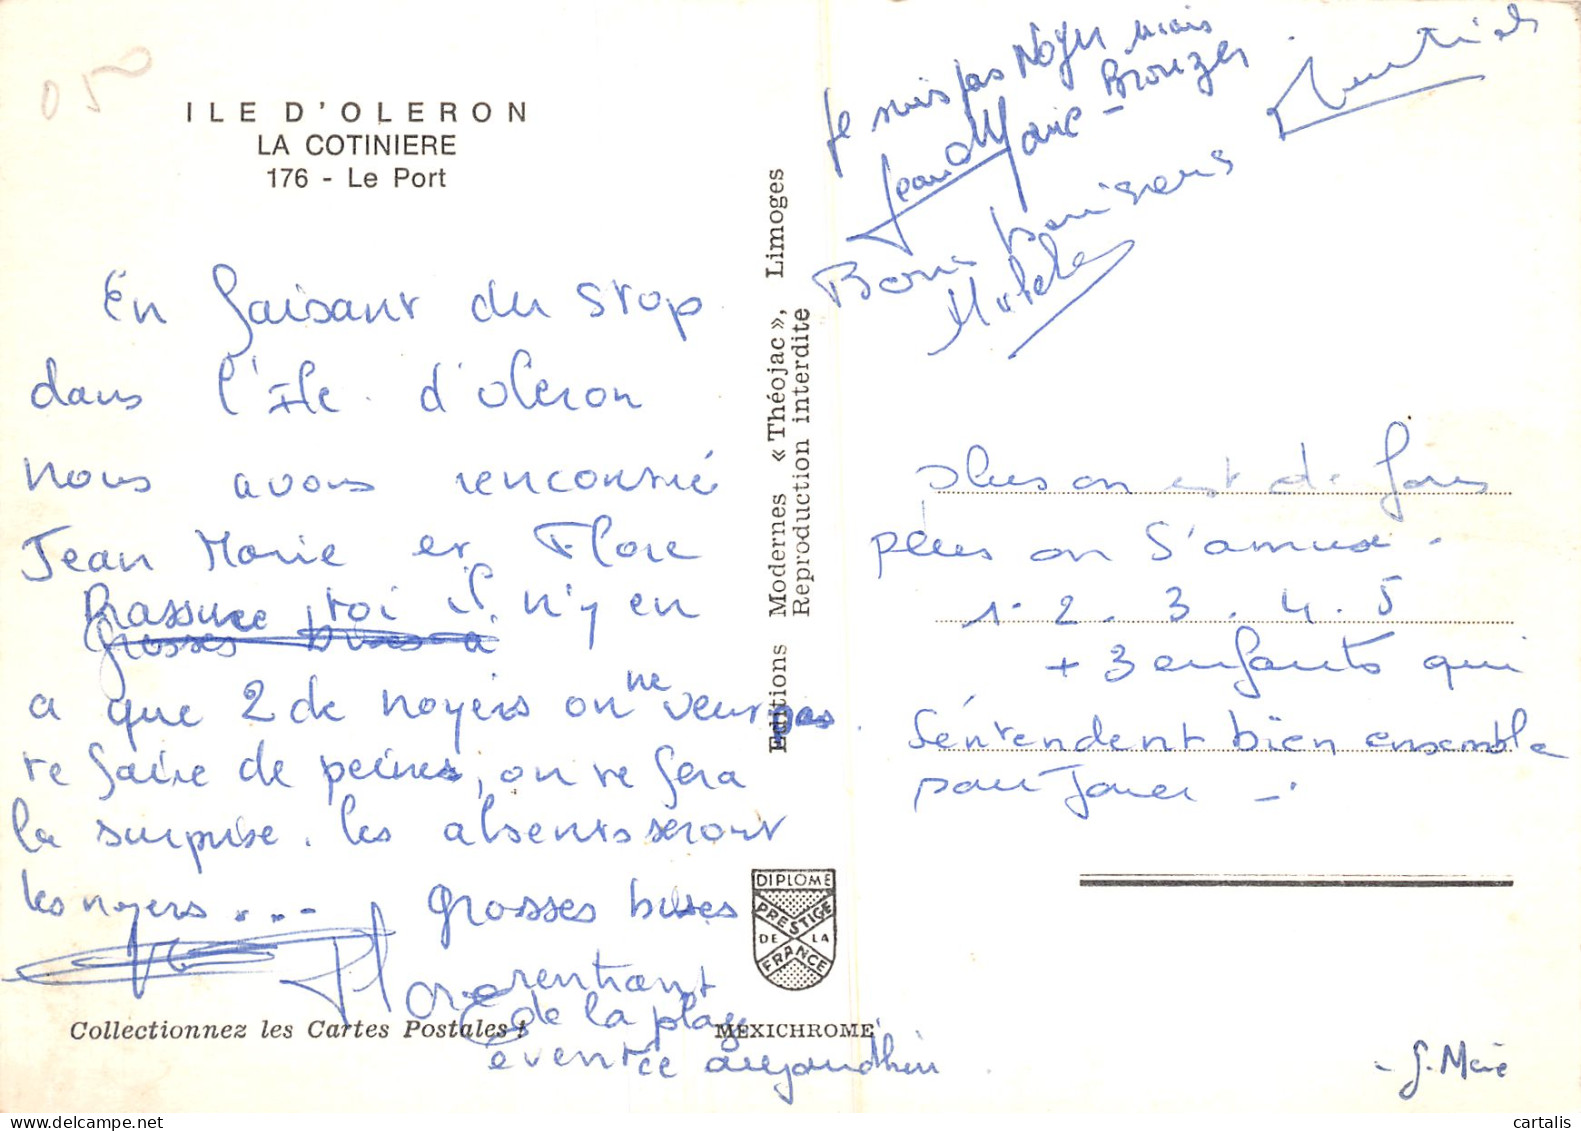 050
ILE D'OLERON
LA COTINIERE
176 - Le Port
En faisant du stop
dans l'Ile d'oleron
nous avons rencontré
Jean Marie et Flore
Rassure toi il n'y en
grosses bises a
a que 2 de noyés on ne veut pas
te faire de peine, on te fera
la surprise. les absents seront
les noyers ...
grosses bises
Flore
rentrant
de la plage
éventée aujourd'hui
Collectionnez les Cartes Postales !
MEXICHROME
Editions Modernes « Théojac », Limoges
Reproduction interdite
DIPLOME
PRESTIGE
DE LA
FRANCE
Je suis pas Noyer mais
Bronzer
Jean Marie -
Bons baisers
plus on est de fous
plus on s'amuse.
1. 2. 3. 4. 5
+ 3 enfants qui
s'entendent bien ensemble
pour Jouer -.
cartalis